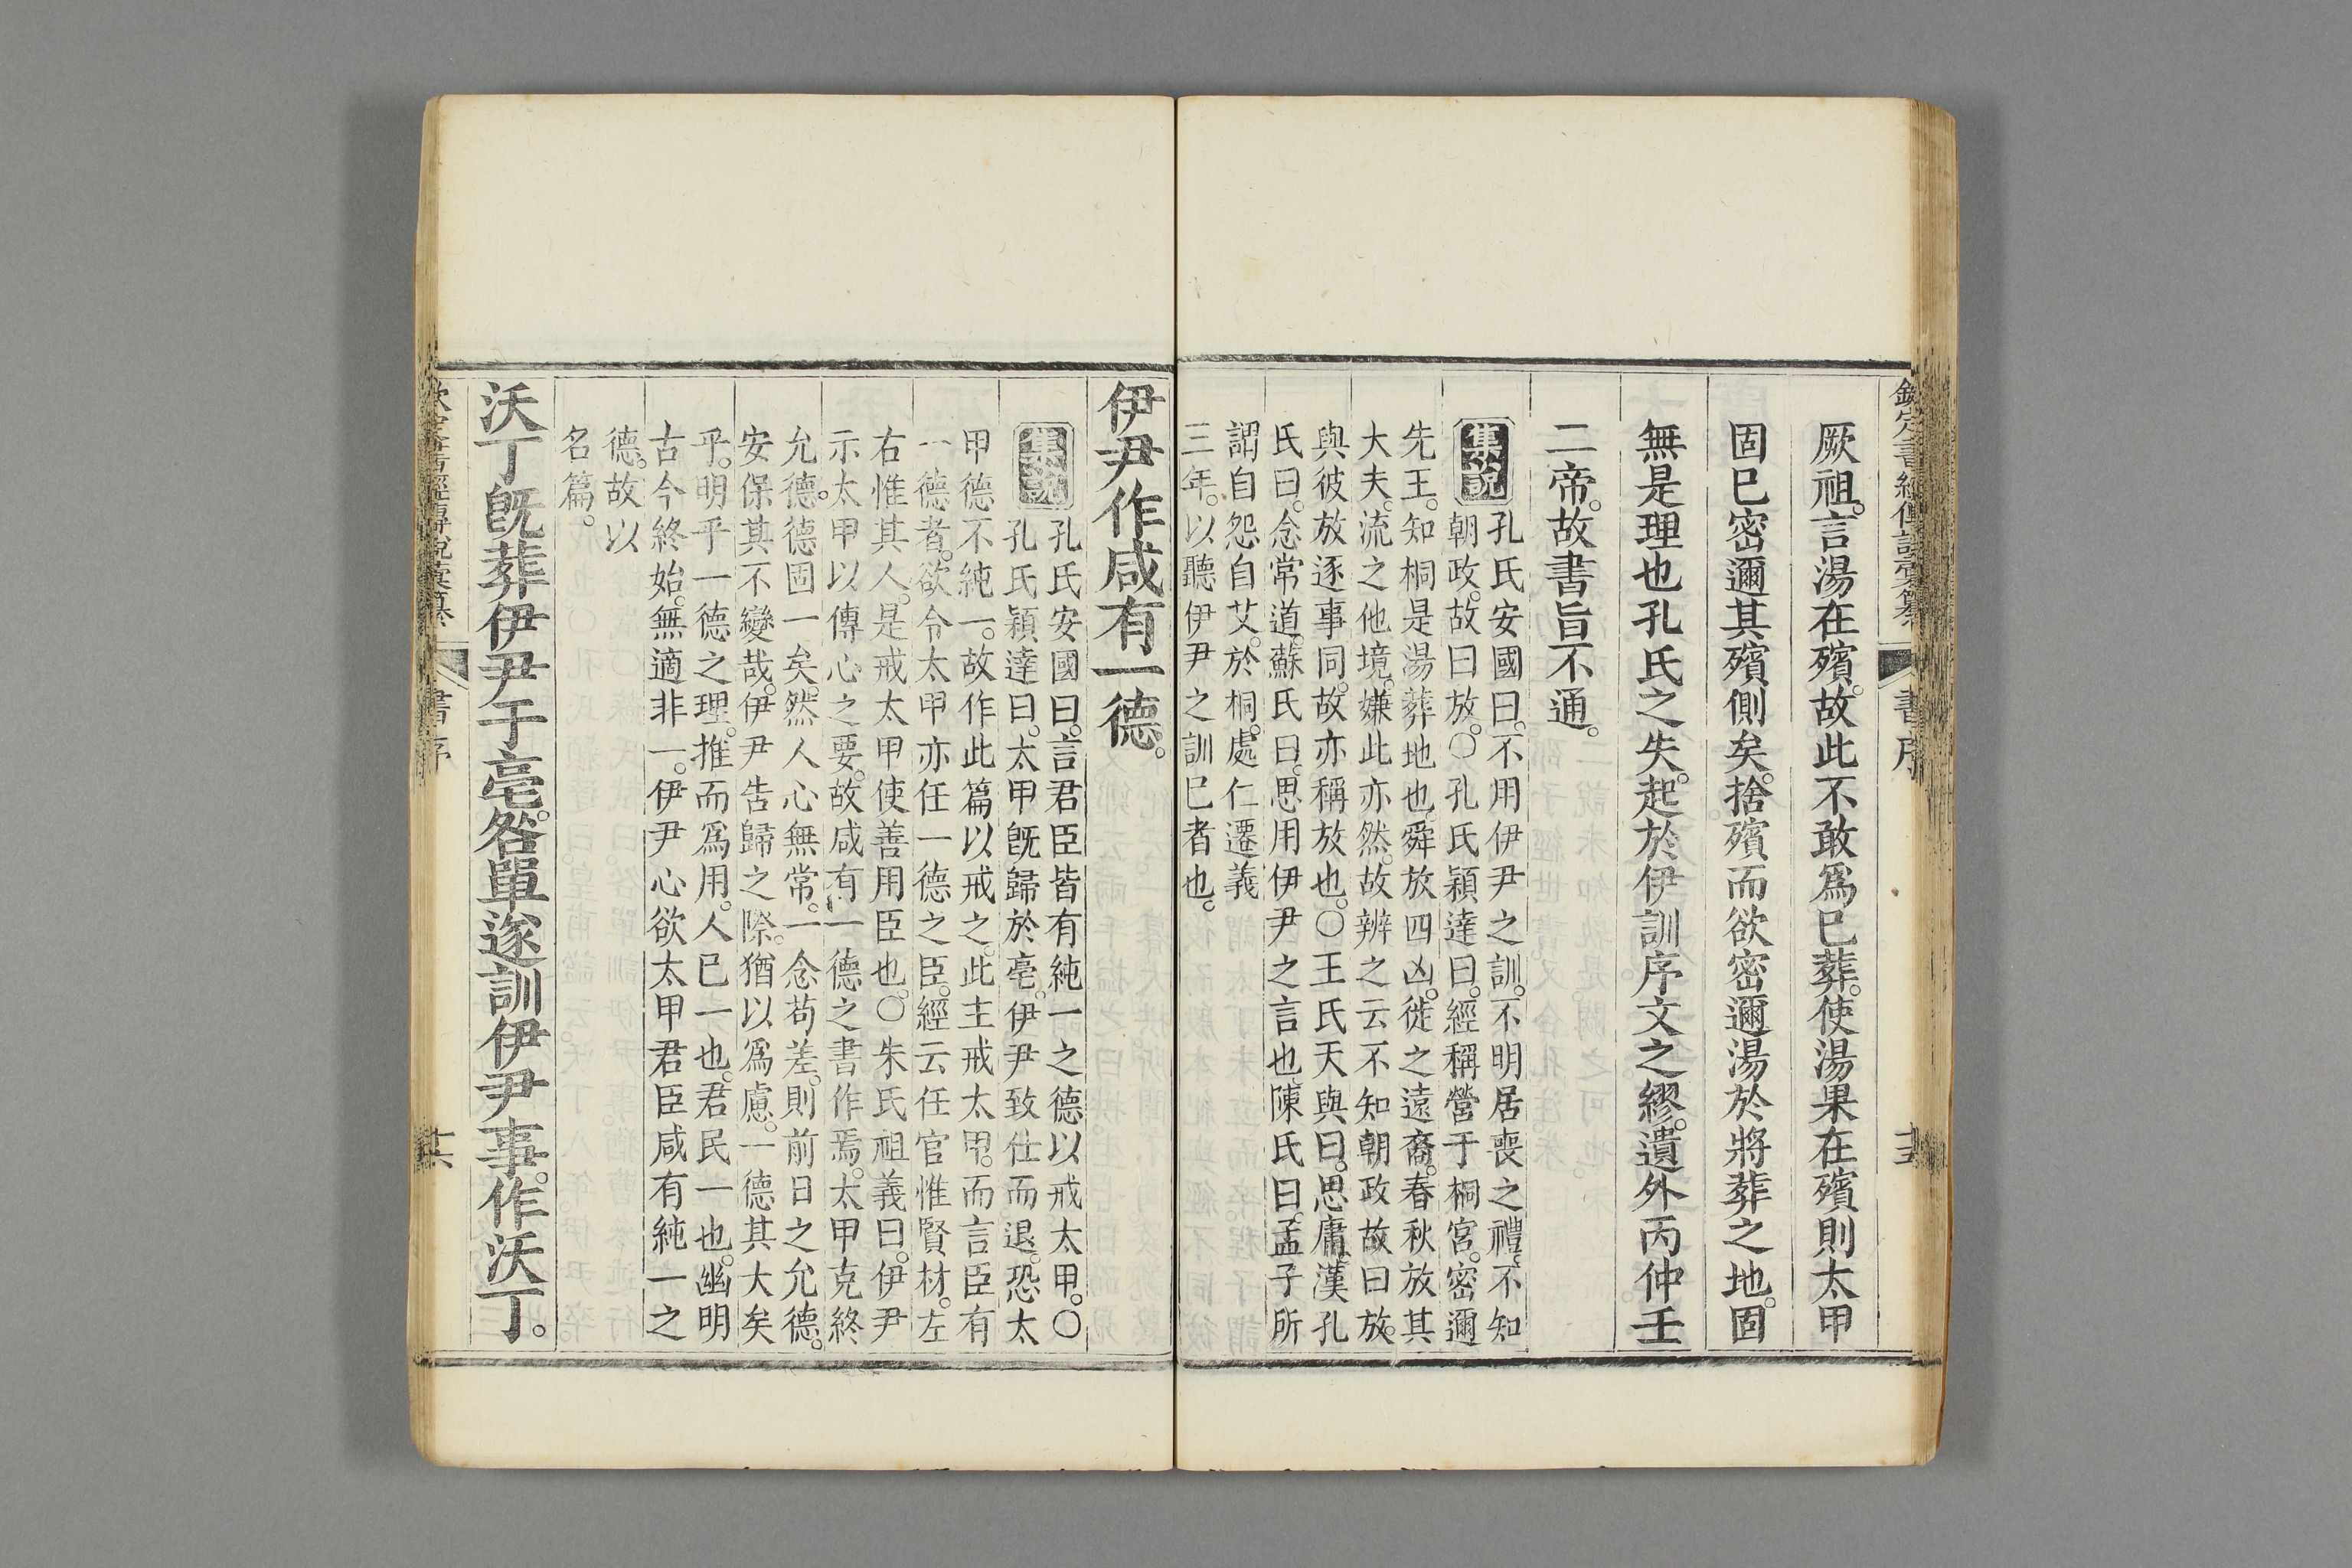 欽定書經傳說彙纂 書序
厥祖。言湯在殯。故此不敢爲已葬。使湯果在殯則太甲
固已密邇其殯側矣。捨殯而欲密邇湯於將葬之地。固
無是理也孔氏之失。起於伊訓序文之繆。遺外丙仲壬
二帝。故書旨不通。
集說 孔氏安國曰。不用伊尹之訓。不明居喪之禮。不知
朝政。故曰放。〇孔氏穎達曰。經稱營于桐宮。密邇
先王。知桐是湯葬地也。舜放四凶。徙之遠裔。春秋放其
大夫。流之他境。嫌此亦然。故辨之云不知朝政故曰放。
與彼放逐事同。故亦稱放也。〇王氏天與曰。思庸。漢孔
氏曰。念常道。蘇氏曰。思用伊尹之言也。陳氏曰。孟子所
謂自怨自艾。於桐。處仁遷義
三年。以聽伊尹之訓已者也。
伊尹作咸有一德。
集說 孔氏安國曰。言君臣皆有純一之德以戒太甲。〇
孔氏穎達曰。太甲旣歸於亳。伊尹致仕而退。恐太
甲德不純一。故作此篇以戒之。此主戒太甲。而言臣有
一德者。欲令太甲亦任一德之臣。經云任官惟賢材。左
右惟其人。是戒太甲使善用臣也。〇朱氏祖義曰。伊尹
示太甲以傳心之要。故咸有一德之書作焉。太甲克終
允德。德固一矣。然人心無常。一念苟差。則前日之允德。
安保其不變哉。伊尹告歸之際。猶以爲慮。一德其大矣
乎。明乎一德之理。推而爲用。人已一也。君民一也。幽明
古今終始。無適非一。伊尹心欲太甲君臣咸有純一之
德。故以
名篇。
沃丁旣葬伊尹于亳。咎單遂訓伊尹事。作沃丁。
欽定書經傳說彙纂 書序